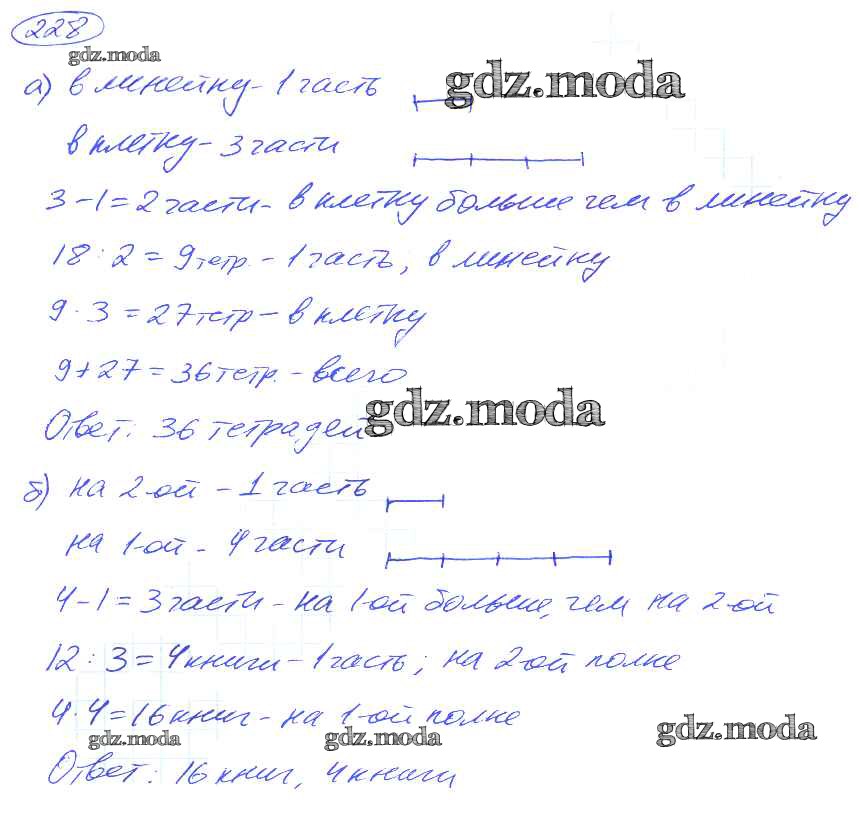 228
gdz.moda
а) в линейку - 1 часть
gdz.moda
в клетку - 3 части
3 - 1 = 2 части - в клетку больше чем в линейку
18 : 2 = 9 тетр. - 1 часть, в линейку
9 · 3 = 27 тетр - в клетку
9 + 27 = 36 тетр. - всего
Ответ: 36 тетрадей
gdz.moda
б) на 2-ой - 1 часть
на 1-ой - 4 части
4 - 1 = 3 части - на 1-ой больше, чем на 2-ой
12 : 3 = 4 книги - 1 часть; на 2-ой полке
4 · 4 = 16 книг - на 1-ой полке
gdz.moda gdz.moda gdz.moda
Ответ: 16 книг, 4 книги